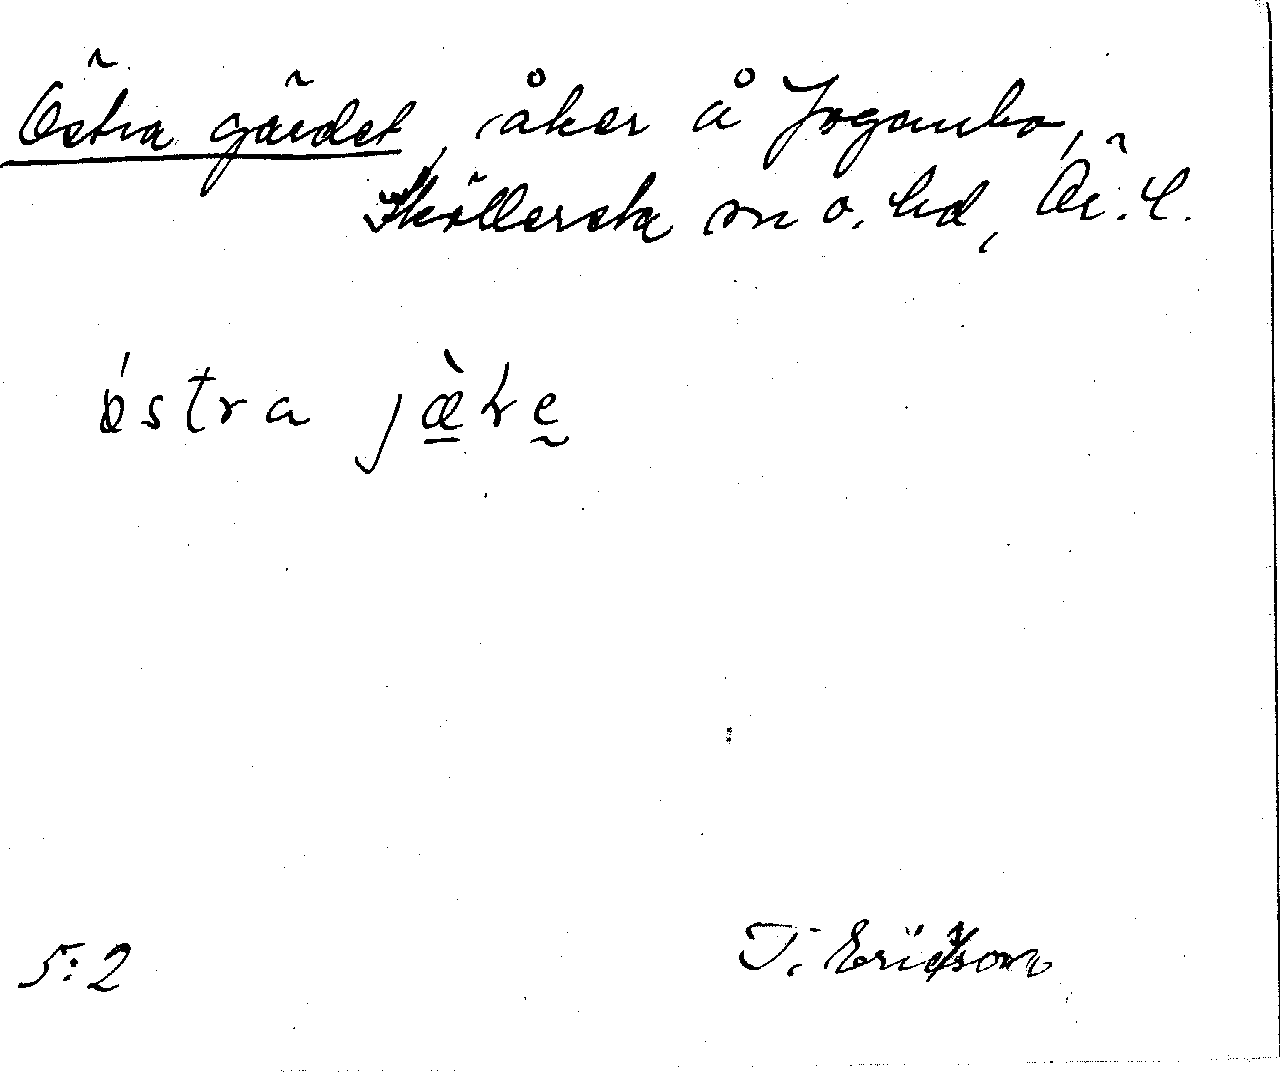 Östra gärdet, åker å Joganbo,
Sköllersta sn o. hd, Ör. l.
östra jære
5:2
T. Ericsson